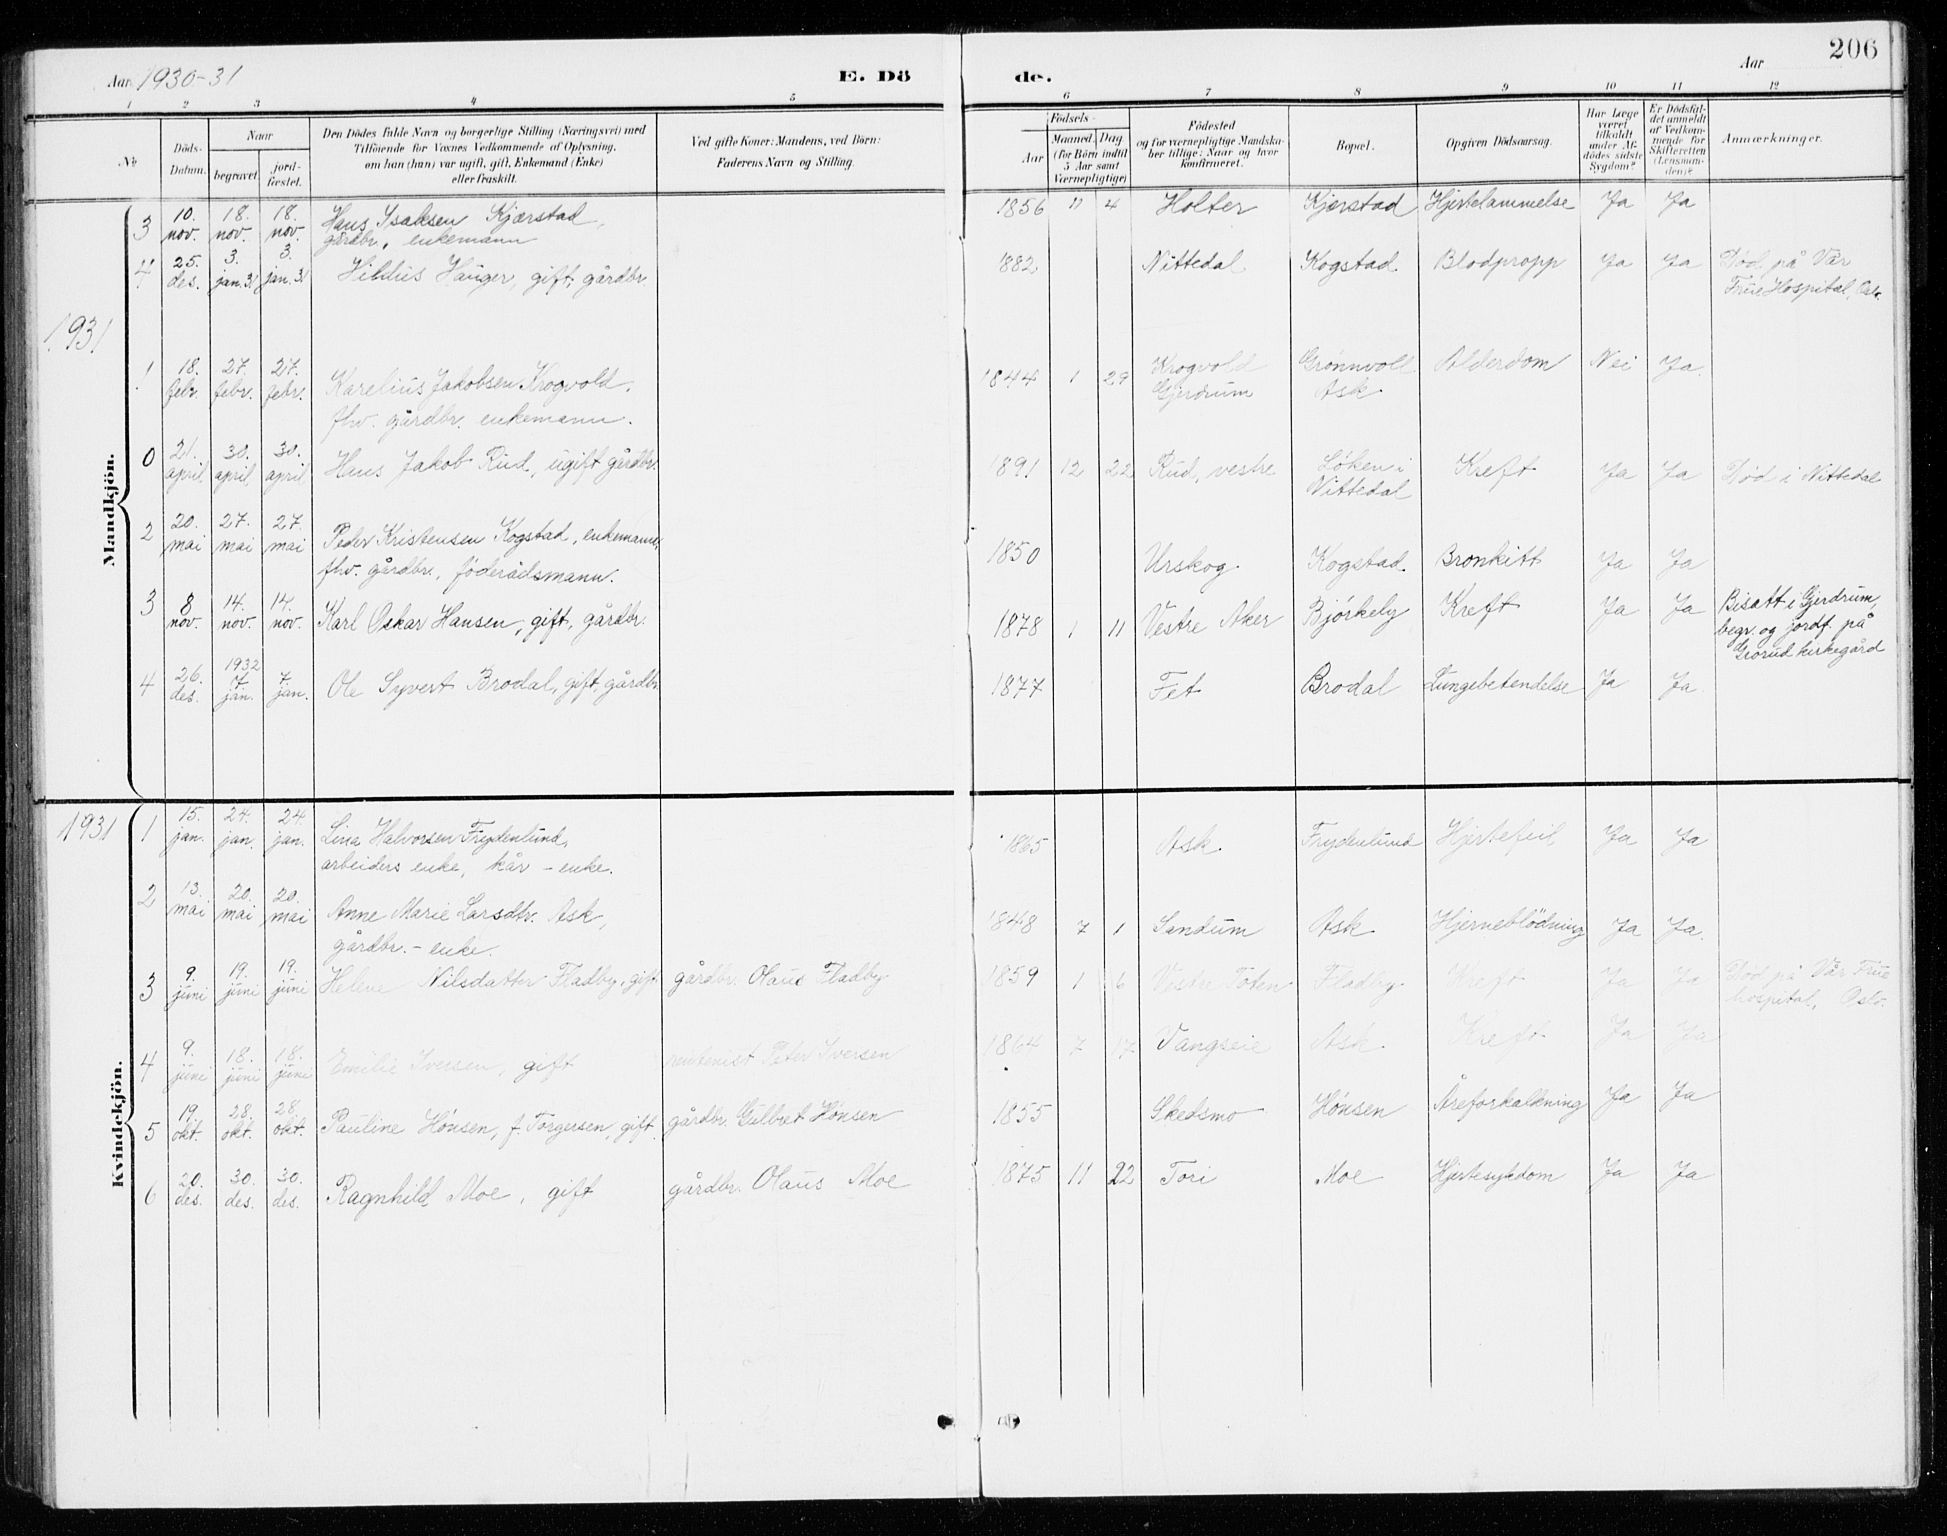 206
Aar 1930-31 E. Dö de. Aar
1 2 3 4 5 6 7 8 9 10 11 12
No
Döds-Datum.
Naar
begravet.
jordfæstet.
Den Dödes fulde Navn og borgerlige Stilling (Næringsvei) med
Tilföiende for Voxnes Vedkommende af Oplysning,
om han (hun) var ugift, gift, Enkemand (Enke)
eller fraskilt.
Ved gifte Koner: Mandens, ved Börn:
Faderens Navn og Stilling.
Födsels-
Aar
Maaned. Dag
(for Börn indtil
5 Aar samt
Værnepligtige)
Födested
og for værnepligtige Mandska-
ber tillige: Naar og hvor
konfirmeret.
Bopæl.
Opgiven Dödsaarsag.
Har Læge
været
tilkaldt
under Af-
dödes sidste
Sygdom?
Er Dödsfal-
det anmeldt
af Vedkom-
mende for
Skifteretten
(Lensman-
den)?
Anmærkninger.
Mandkjön.
3 10. nov. 18. nov. 18. nov. Hans Isaksen Kjærstad, gårdbr., enkemann 1856 11 4 Holter Kjærstad Hjertelammelse Ja Ja
4 25. des. 3. jan. 31 3. jan. 31 Hildus Hauger, gift, gårdbr. 1882 Nittedal Kogstad Blodpropp Ja Ja Död på Vår Frue Hospital,
1931
1 18. febr. 27. febr. 27. febr. Karelius Jakobsen Krogvold, fhv. gårdbr. enkemann. 1844 1 29 Krogvold Gjerdrum Grönnvoll Ask Alderdom Nei Ja.
0 21. april 30. april 30. april Hans Jakob Rud, ugift gårdbr. 1891 12 22 Rud, vestre Löken i Nittedal Kreft Ja Ja Död i Nittedal
2 20. mai 27. mai 27. mai Peder Kristensen Kogstad, enkemann, fhv. gårdbr., föderådsmann. 1850 Urskog Kogstad Bronkitt Ja Ja
3 8 nov. 14. nov. 14. nov. Karl Oskar Hansen, gift, gårdbr. 1878 1 11 Vestre Aker Björkely Kreft Ja Ja Bisatt i Gjerdrum, begr. og jordf. på Grorud kirkegård
4 26. des. 1932 7 jan. 7. jan. Ole Syvert Brodal, gift, gårdbr. 1877 Fet Brodal Lungebetendelse Ja Ja
Kvindekjön.
1931
1 15. jan. 24. jan. 24 jan. Lina Halvorsen Frydenlund, arbeiders enke, kår - enke. 1865 Ask Frydenlund Hjertefeil Ja Ja
2 13. mai 20. mai 20. mai Anne Marie Larsdtr. Ask, gårdbr. - enke. 1848 7 1 Sandum Ask Hjerneblödning Ja Ja.
3 9. juni 19. juni 19. juni Helene Nilsdatter Fladby, gift gårdbr. Olaus Fladby 1859 1 6 Vestre Toten Fladby Kreft Ja Ja Död på Vår Frue hospital, Oslo.
4 9. juni 18. juni 18. juni Emilie Iversen, gift rentenist Peter Iversen 1864 7 17 Vangseie Ask Kreft Ja Ja
5 19. okt. 28. okt. 28. okt. Pauline Hönsen, f. Torgersen, gift gårdbr. Gulbret Hönsen 1855 Skedsmo Hönsen Åreforkalkning Ja Ja
6 20. des. 30. des. 30. des. Ragnhild Moe, gift gårdbr. Olaus Moe 1875 11 22 Tori Moe Hjertesykdom Ja Ja